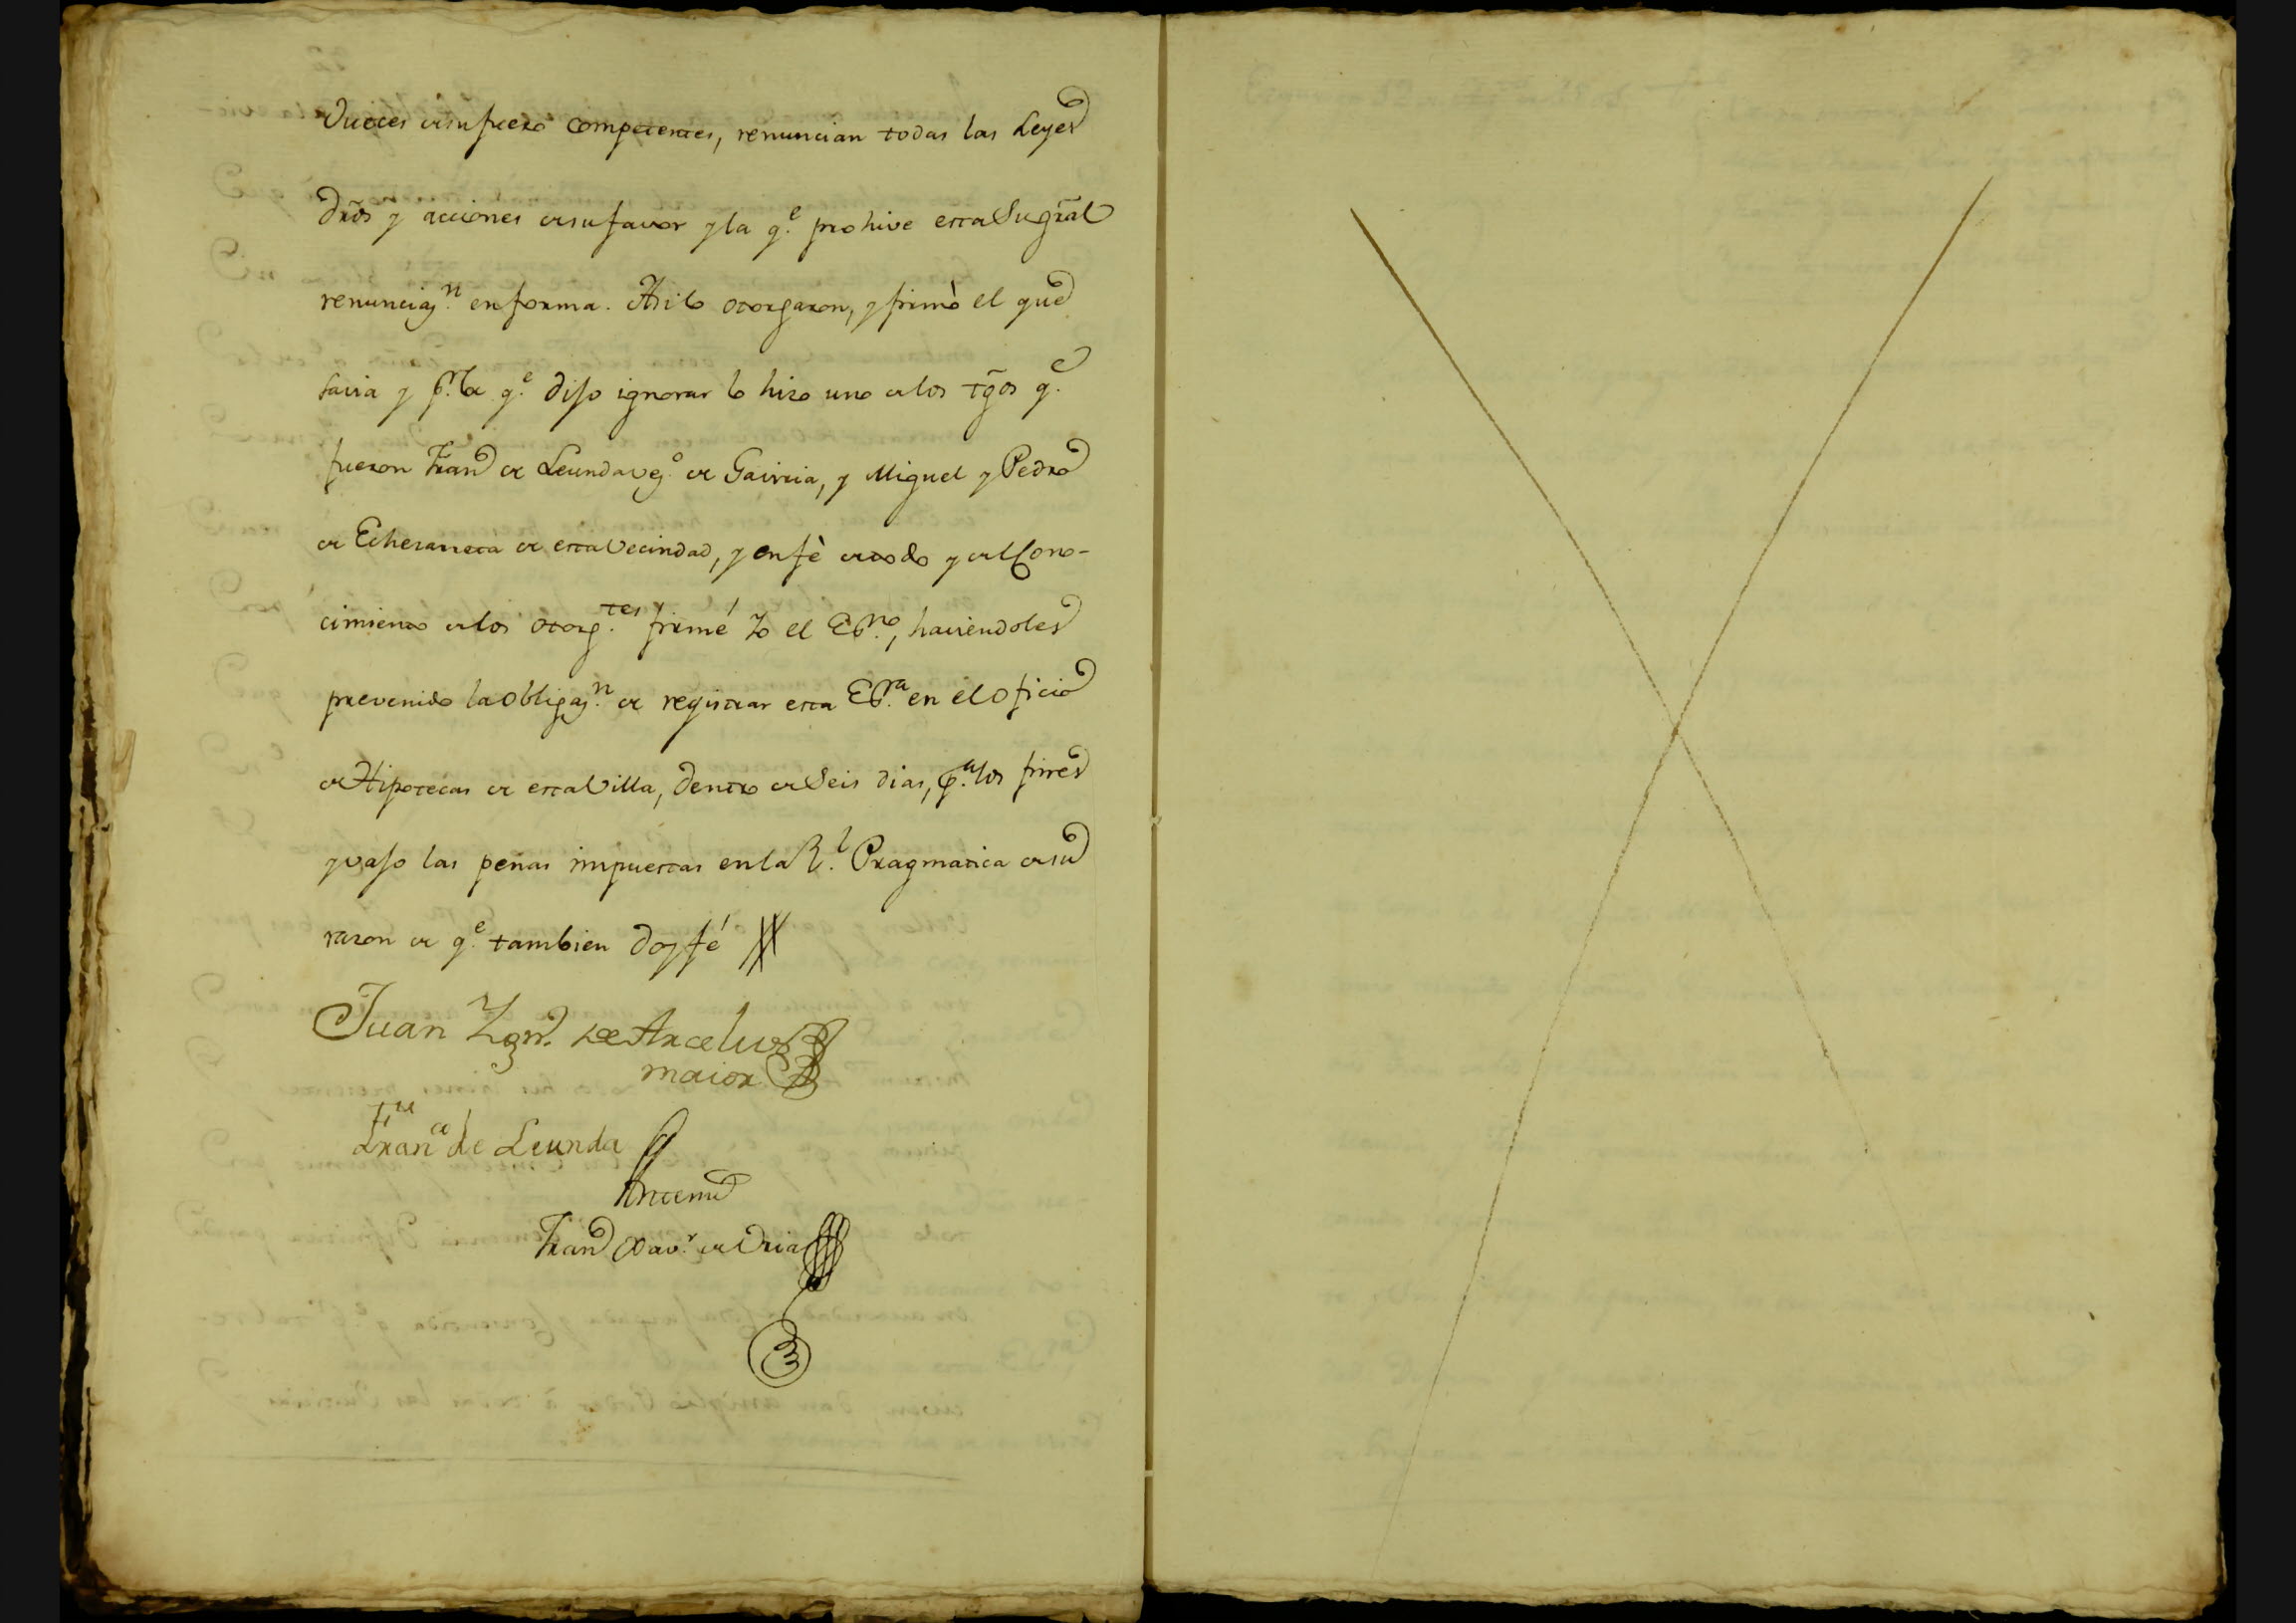 Jueces de su fuero competentes, renuncian todas las Leyes
dr̃os y acciones de su favor y la q.e prohive esta Su gr̃al
renunciaz.n en forma. Asi lo otorgaron, y firmò el que
savia y p.r la q.e dijo ignorar lo hizo uno de los tg̃os q.e
fueron Fran.co de Leunda vez.o de Gaviria, y Miguel y Pedro
de Echezarreta de esta vecindad, y en fè de todo y del Cono-
cimiento de los otorg.tes firmé Yo el Es.no, haviendoles
prevenido la obligaz.n de registrar esta Es.ra en el oficio
de Hipotecas de esta Villa, dentro de Seis dias, p.a los fines
y vajo las penas impuestas en la R.l Pragmatica de su
razon de q.e tambien doy fé
Juan Ygn.o de Arcelus
maior
Fran.co de Leunda
Ante mi
Fran.co Xav.r de Oria